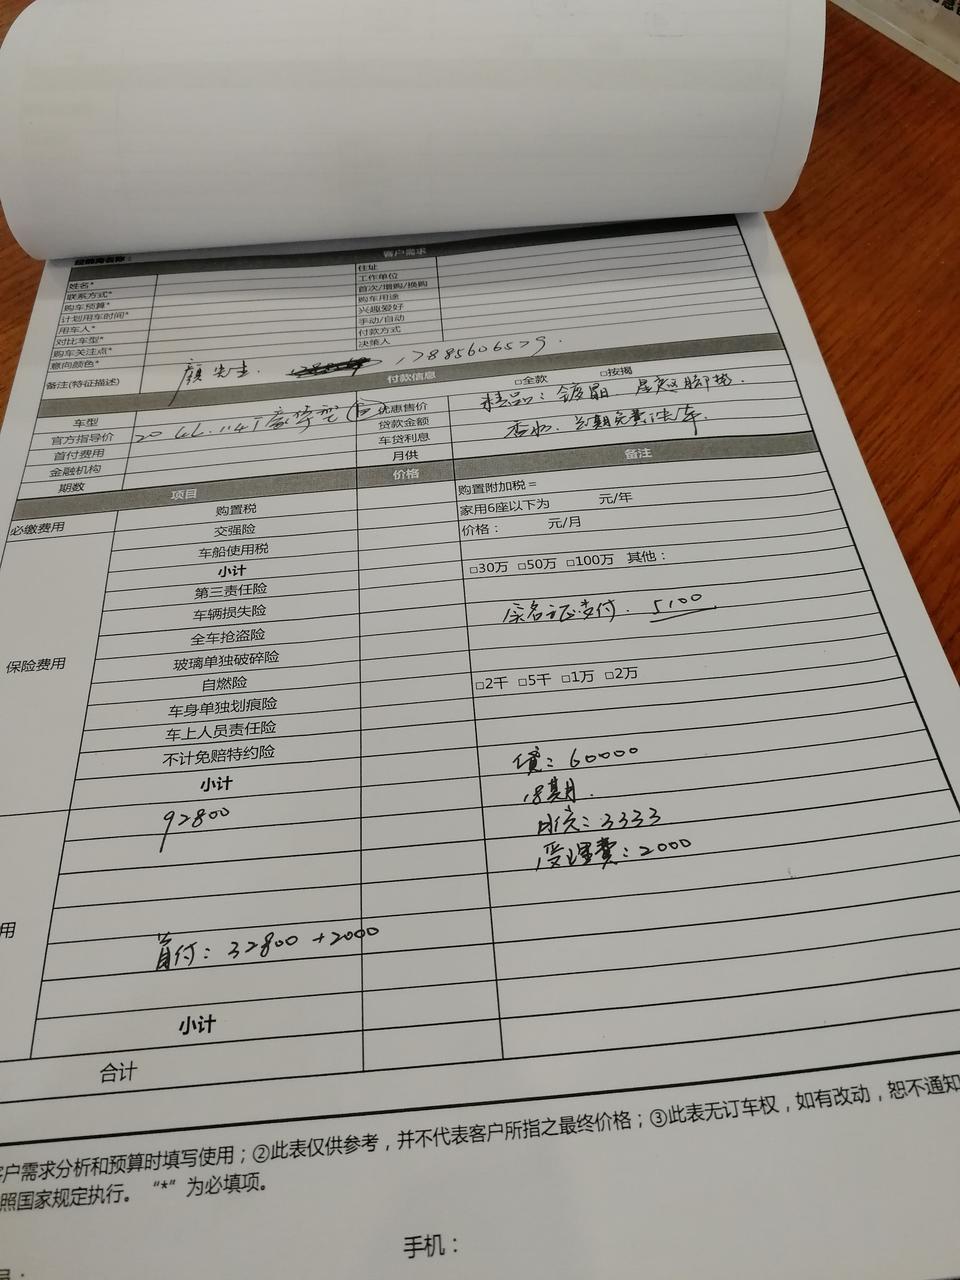 客户需求
姓名* 住址
联系方式* 工作单位
购车预算* 首次/增购/换购
计划用车时间* 购车用途
用车人* 兴趣爱好
对比车型* 手动/自动
购车关注点* 付款方式
意向颜色* 决策人
备注(特征描述) 颜先生. 17885606579.
付款信息
车型 优惠售价 □全款 □按揭
官方指导价 贷款金额
首付费用 车贷利息
金融机构 月供
期数
项目 价格 备注
必缴费用 购置税 购置附加税=
交强险 家用6座以下为 元/年
车船使用税 价格: 元/月
小计
保险费用 第三责任险 □30万 □50万 □100万 其他:
车辆损失险
全车抢盗险 5100
玻璃单独破碎险
自燃险
车身单独划痕险 □2千 □5千 □1万 □2万
车上人员责任险
不计免赔特约险
小计 60000
92800 18期.
3333
用 受理费:2000
首付:32800+2000
小计
合计
客户需求分析和预算时填写使用;②此表仅供参考,并不代表客户所指之最终价格;③此表无订车权,如有改动,恕不通知
照国家规定执行。 “*”为必填项。
手机: